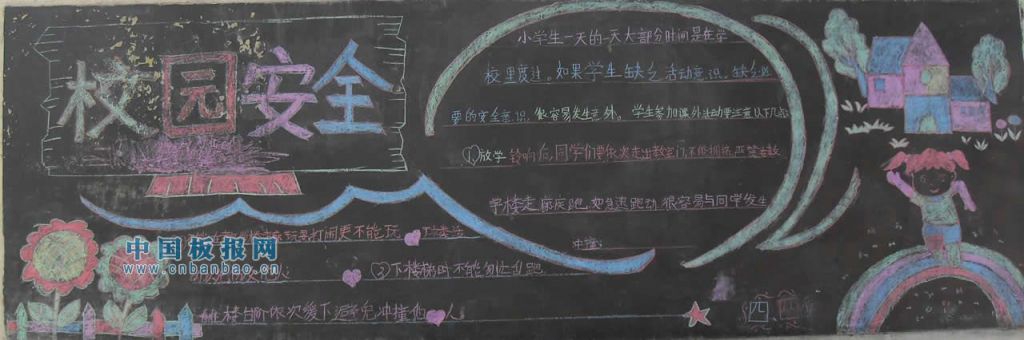 校园安全
小学生一天的一天大部分时间是在学
校里度过。如果学生缺乏活动意识。缺乏必
要的安全意识。很容易发生意外。学生参加课外活动要注意以下几点
①放学铃响后,同学们要依次走出教室门,不能拥挤,严禁在教
学楼走廊疾跑,如急速跑动很容易与同学发生
冲撞。
打闹更不能玩
②下楼梯时不能勿忙乱跑
楼台阶依次缓下 冲撞他人
中国板报网
www.cnbanbao.cn
四、四